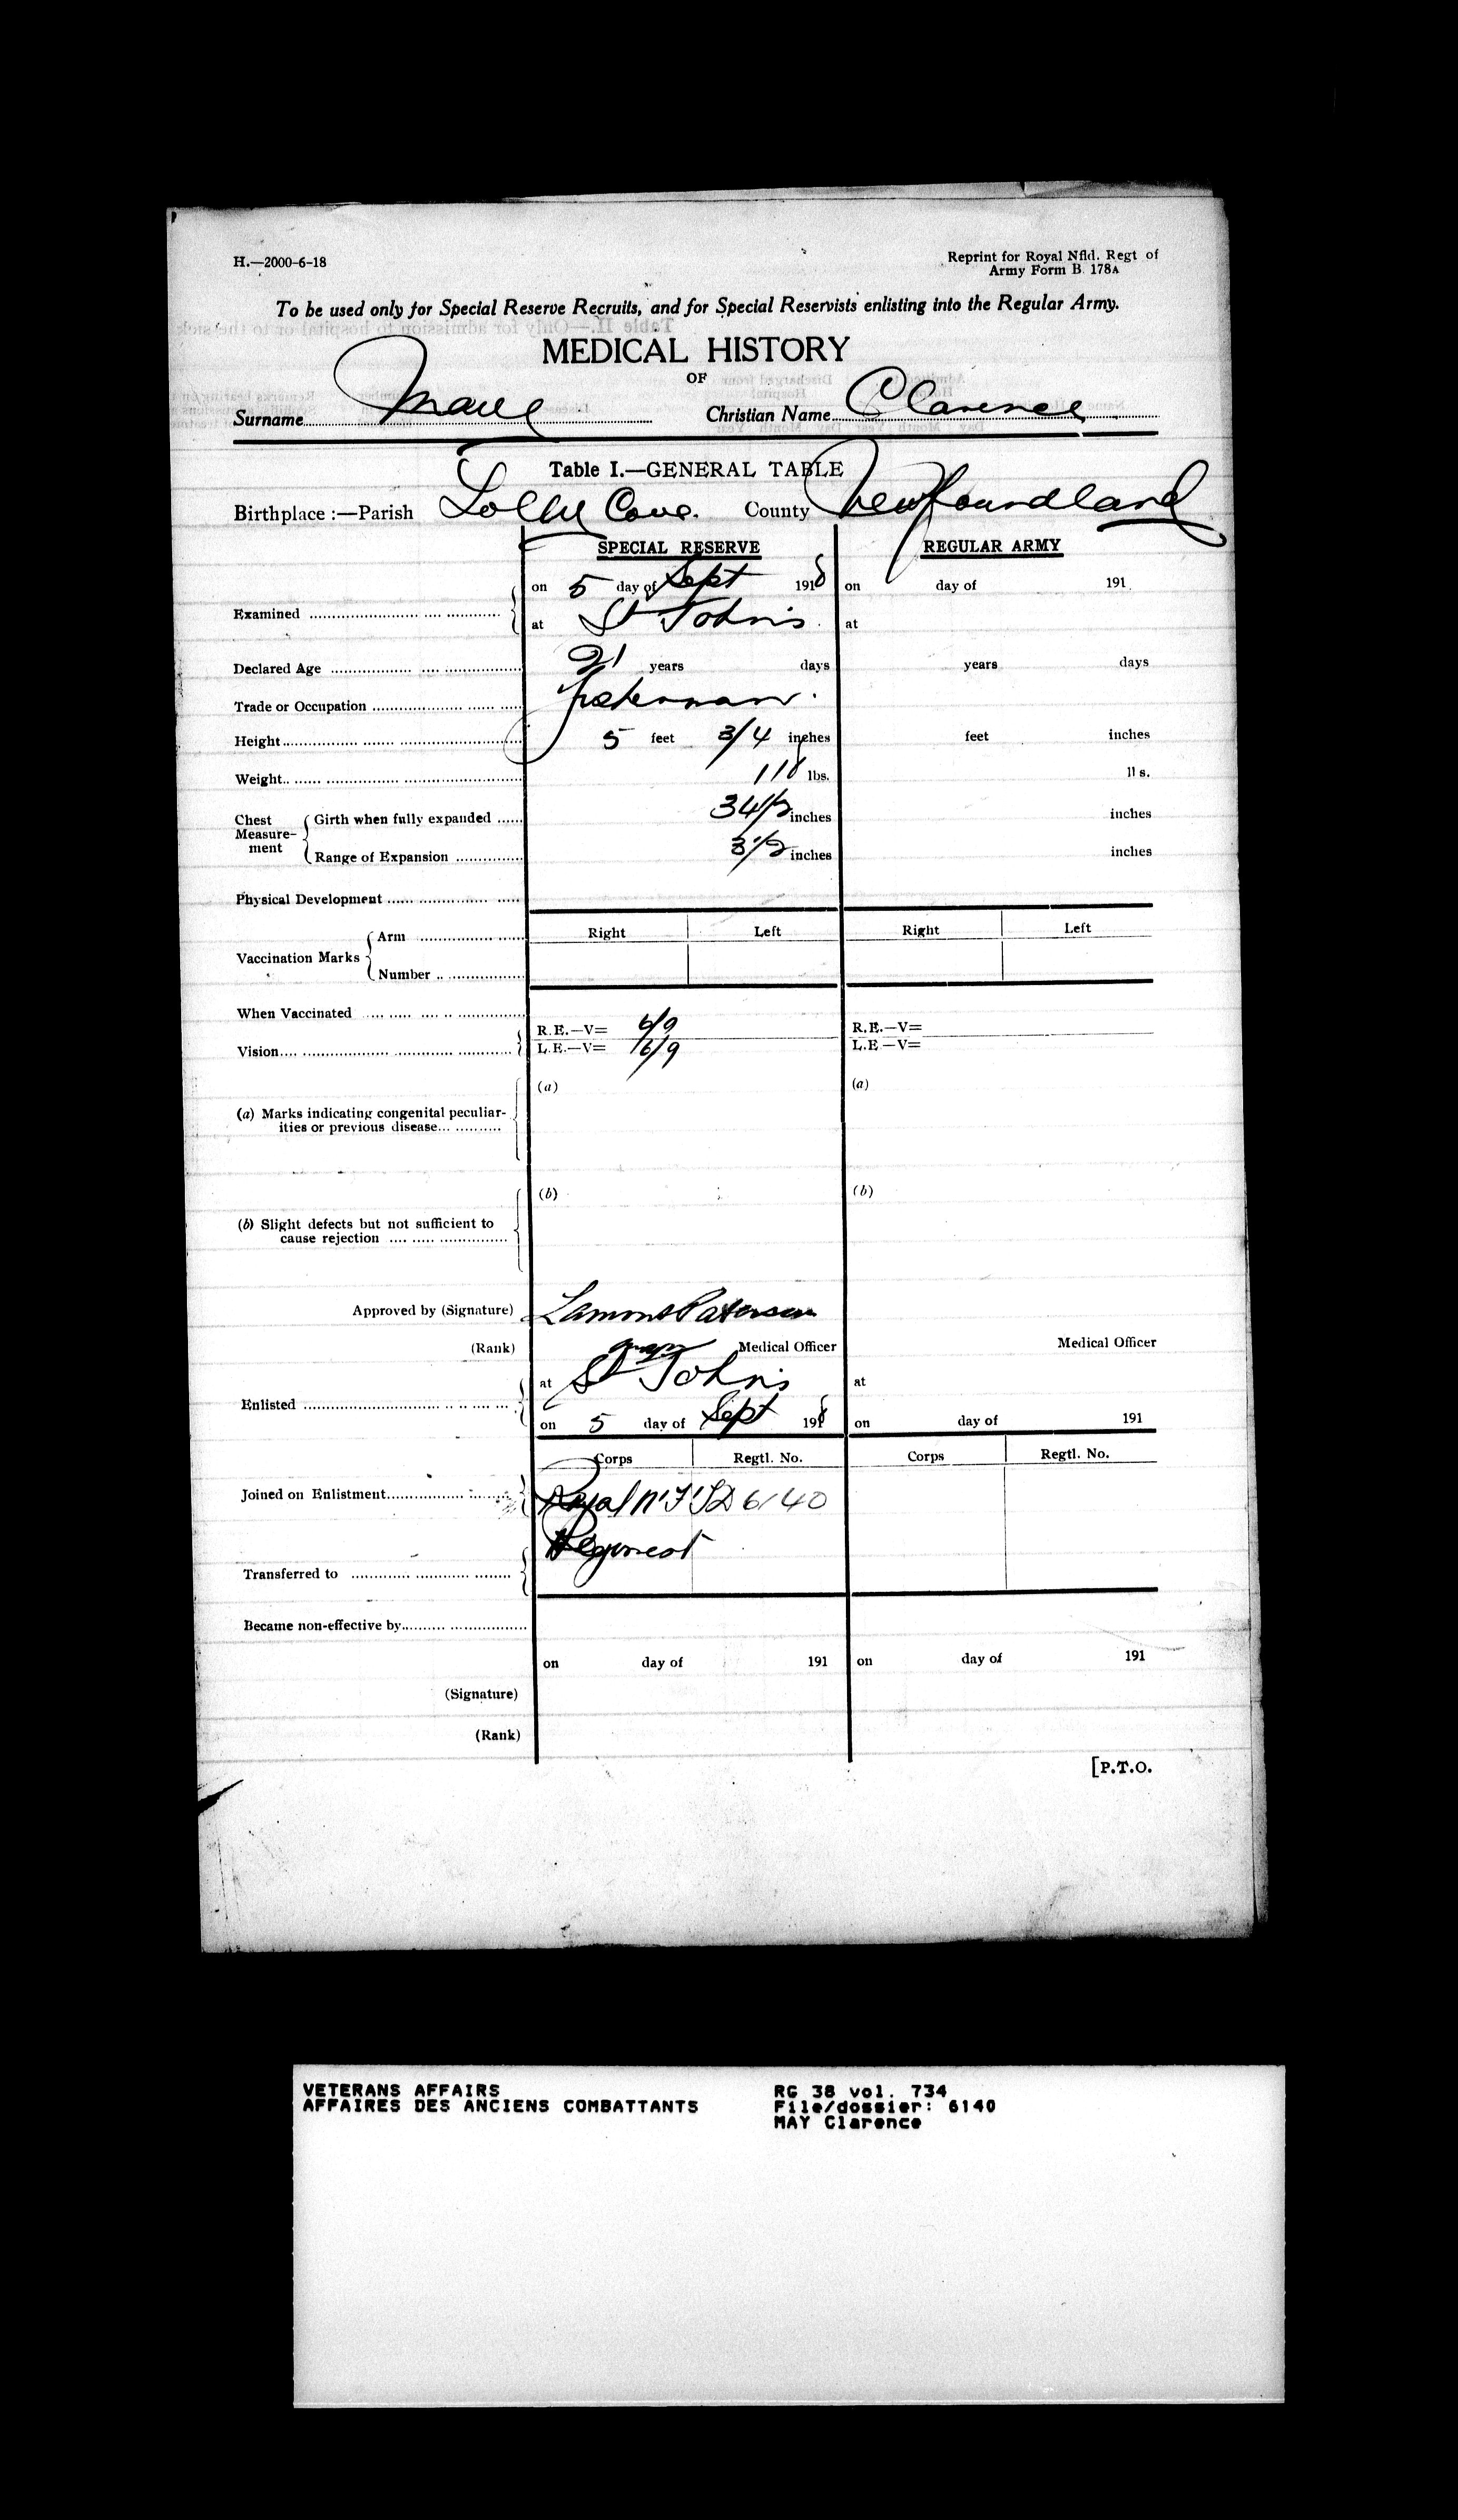 H.—2000-6-18
Reprint for Royal Nfld. Regt of
Army Form B. 178A
To be used only for Special Reserve Recruits, and for Special Reservists enlisting into the Regular Army.
MEDICAL HISTORY
OF
Surname Christian Name Clarence
Table I.—GENERAL TABLE
Birthplace :—Parish Cove. County Newfoundland
SPECIAL RESERVE REGULAR ARMY
Examined on 5 day of Sept 1918 on day of 191
at St John's at
Declared Age 21 years days years days
Trade or Occupation Fisherman.
Height 5 feet 3/4 inches feet inches
Weight lbs. lbs.
Chest Measurement Girth when fully expanded 34 1/2 inches inches
Range of Expansion 3 1/2 inches inches
Physical Development
Vaccination Marks Arm Right Left Right Left
Number
When Vaccinated
Vision R.E.—V= 6/9 R.E.—V=
L.E.—V= 6/9 L.E—V=
(a) Marks indicating congenital peculiar- (a) (a)
ities or previous disease
(b) Slight defects but not sufficient to (b) (b)
cause rejection
Approved by (Signature) Lamont Paterson
(Rank) Medical Officer Medical Officer
Enlisted at St John's at
on 5 day of Sept 1918 on day of 191
Corps Regtl. No. Corps Regtl. No.
Joined on Enlistment Royal N'F'LD 6140
Regiment
Transferred to
Became non-effective by
on day of 191 on day of 191
(Signature)
(Rank)
[P.T.O.
VETERANS AFFAIRS RG 38 vol. 734
AFFAIRES DES ANCIENS COMBATTANTS File/dossier: 6140
MAY Clarence